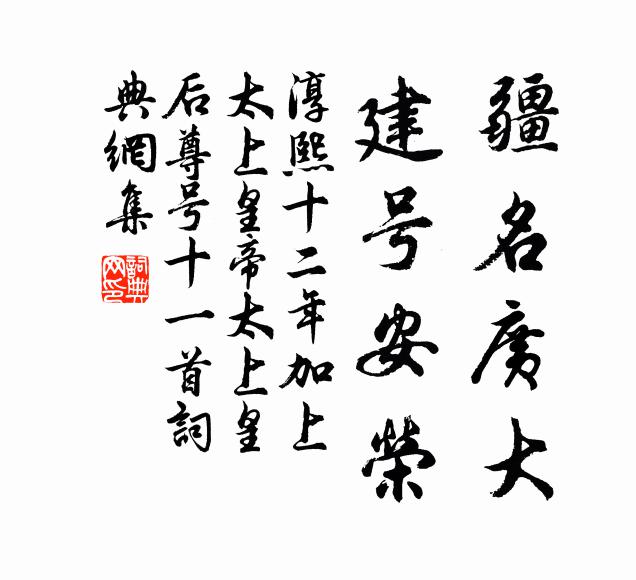 疆名廣大
建号安榮
淳熙十二年加上
太上皇帝太上皇
后尊号十一首詞
典網集
詞典網印